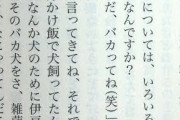 については、いろいろ
なんですか?
だ、バカってね(笑)」
言ってきてね、それで
かけ飯で犬飼ってたん
なんか犬のために伊豆
そのバカ犬をさ、雑